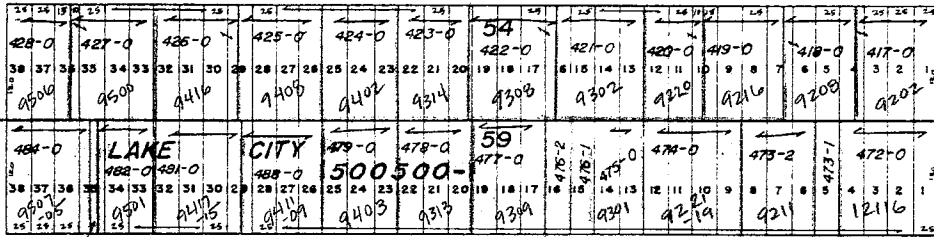 25 25 15 10 25 25 25 25 10 15 25 25 25
54
428-0 427-0 426-0 425-0 424-0 423-0 422-0 421-0 420-0 419-0 418-0 417-0
38 37 36 35 34 33 32 31 30 29 28 27 26 25 24 23 22 21 20 19 18 17 16 15 14 13 12 11 10 9 8 7 6 5 4 3 2 1
9506 9500 9416 9408 9402 9314 9308 9302 9220 9216 9208 9202
59
484-0 LAKE CITY 479-0 478-0 477-0 476-2 476-1 475-0 474-0 473-2 473-1 472-0
482-0 481-0 488-0 500500-1
38 37 36 35 34 33 32 31 30 29 28 27 26 25 24 23 22 21 20 19 18 17 16 15 14 13 12 11 10 9 8 7 6 5 4 3 2 1
9507-05 9501 9417-15 9411-09 9403 9313 9309 9301 9221 19 9211 12116
25 25 25 25 25 25 25